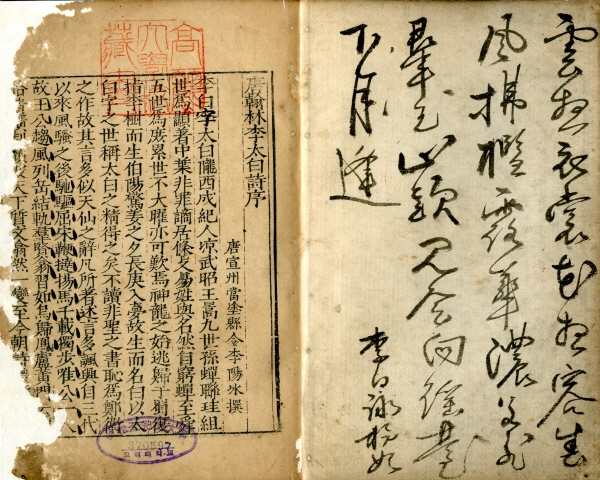 雲想衣裳花想容春
風拂檻露華濃若非
羣玉山頭見會向瑤臺
下月逢
李白詠楊妃
唐翰林李太白詩序
唐宣州當塗縣令李陽冰撰
李白字太白隴西成紀人凉武昭王暠九世孫蟬聯珪組
世爲顯著中葉非罪謫居條支昜姓與名然自窮蟬至舜
五世爲庶累世不大曜亦可歎焉神龍之始逃歸于蜀復
指李樹而生伯陽驚姜之夕長庚入夢故生而名白以太
白字之世稱太白之精得之矣不讀非聖之書恥爲鄭衛
之作故其言多似天仙之辭凡所著述言多諷興自三代
以來風騷之後馳驅屈宋鞭撻揚馬千載獨步雅公一人
故王公趨風列岳結軌羣賢翕習如鳥歸鳳盧黃門云
天下質文翕然一變至今朝詩
高麗大學校藏書
고려대학교